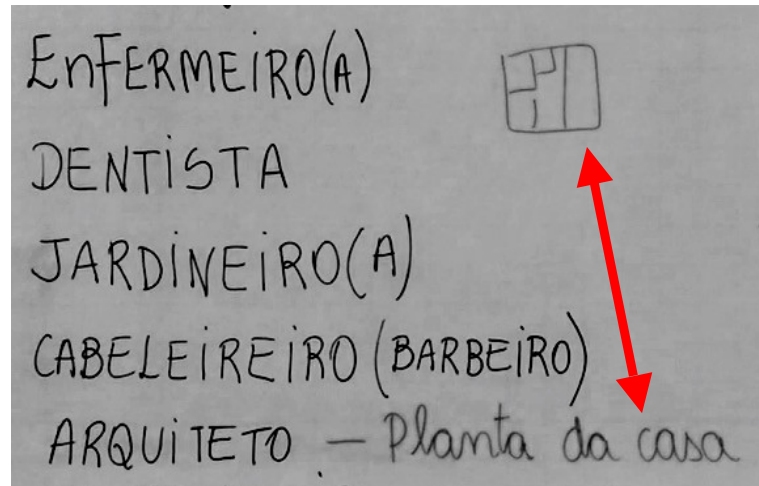 ENFERMEIRO(A)
DENTISTA
JARDINEIRO(A)
CABELEIREIRO (BARBEIRO)
ARQUITETO - Planta da casa